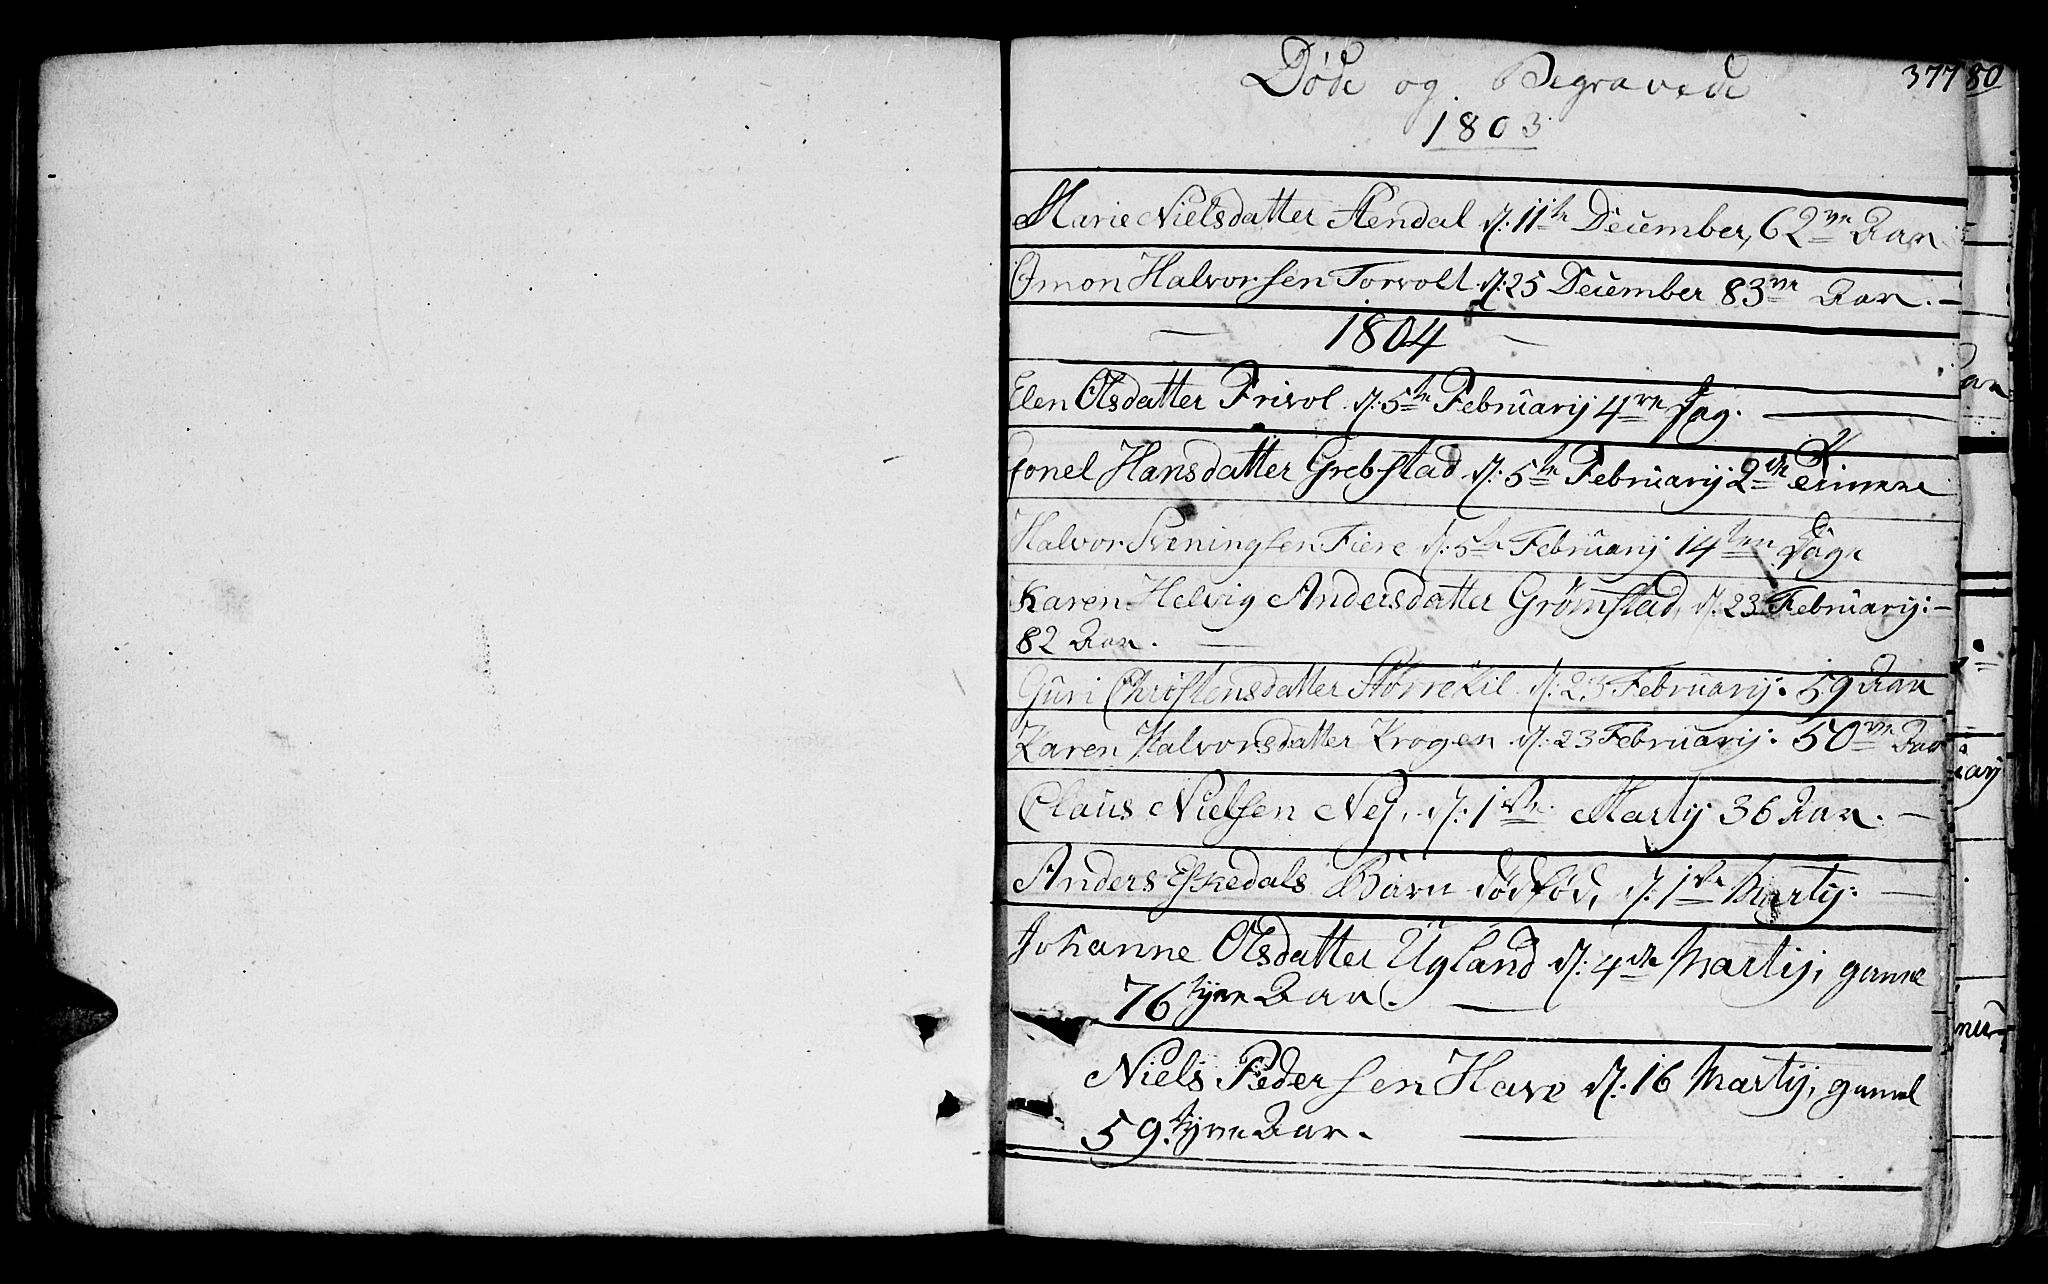 Døde og Begravede
377 80
1803
Marie Nielsdatter Stendal d: 11te December, 62ve Aar
Omon Halvorsen Torvolt d: 25 December 83ve Aar. -
- 1804 -
Elen Olsdatter Frivol d: 5te Februarij 4re Dag.
Gonel Hansdatter Grebstad d: 5te Februarij 2de
Halvor Sveningsen Fiere d: 5te Februarij 14ten Dage
Karen Helvig Andersdatter Grømstad, d: 23 Februarij: -
82 Aar. -
Guri Christensdatter Størrekil d: 23 Februarij: 59 Aar
Karen Halvorsdatter Krogen d: 23 Februarij: 50ve Aar
Claus Nielsen Nej, d: 1ste Martij 36 Aar. -
Anders Eskedals Barn dødfød, d: 1ste Martij: -
Johanne Olsdatter Ugland d: 4de Martij, gamel
76 tyve Aar. -
Niels Pedersen Have d: 16 Martij, gamel
59. tyve Aar. -